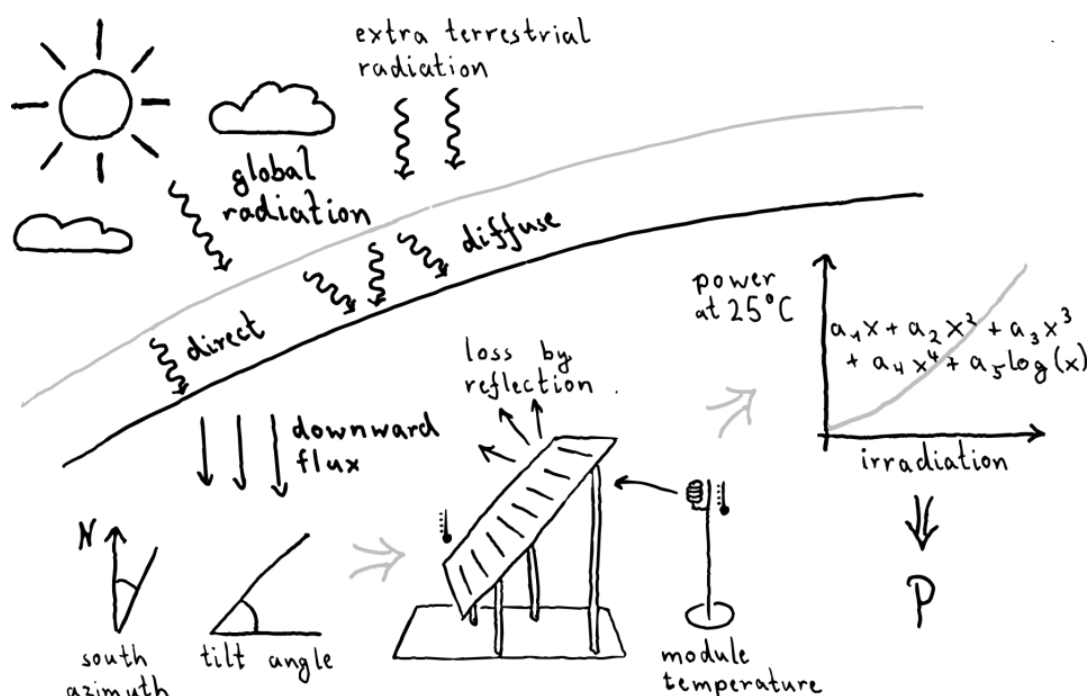 extra terrestrial
radiation
global
radiation
diffuse
direct
downward
flux
loss by
reflection
power
at 25°C
a₁x + a₂x² + a₃x³
+ a₄x⁴ + a₅log(x)
irradiation
P
N
south
azimuth
tilt angle
module
temperature